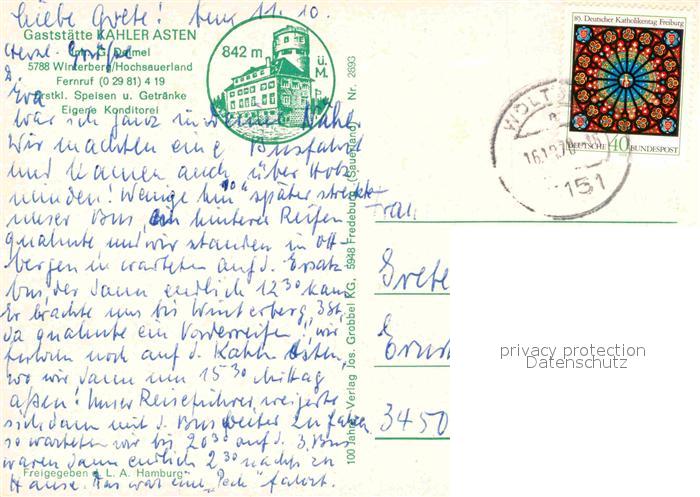 Liebe Grete! Den 11.10.
Gaststätte KAHLER ASTEN
Inh. G. Dümel
5788 Winterberg/Hochsauerland
Fernruf (0 29 81) 4 19
Erstkl. Speisen u. Getränke
Eigene Konditorei
842 m ü. M.
Herzl. Grüße
Eva
War ich ganz in deiner Nähe.
Wir machten eine Busfahrt
und kamen auch über Holz
minden! Wenige km später streikte
unser Bus, ein hinterer Reifen
qualmte und wir standen in Ott
bergen u. warteten auf d. Ersatz
bus, der dann endlich 12 30 kam.
Er brachte uns bis Winterberg,
da qualmte ein Vorderreifen, wir
fuhren noch auf d. Kahlen Asten,
wo wir dann um 15 30 Mittag
aßen! Unser Reiseführer weigerte
sich dann mit d. Bus weiter zu fahren
so warteten wir bis 20 30 auf d. 3. Bus
waren dann endlich 2 30 nachts zu
Hause. Das war eine "Pech" fahrt.
Freigegeben d. L. A. Hamburg
100 Jahre Verlag Jos. Grobbel KG, 5948 Fredeburg (Sauerland) Nr. 2693
85. Deutscher Katholikentag Freiburg
DEUTSCHE 40 BUNDESPOST
151
Frau
Grete
3450
privacy protection
Datenschutz